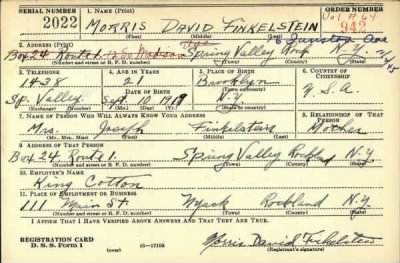 SERIAL NUMBER 1. NAME (Print) ORDER NUMBER
2022 MORRIS DAVID FINKELSTEIN 942
(First) (Middle) (Last)
2. ADDRESS (Print)
Box 24 Route 1 Spring Valley Rock N.Y.
(Number and street or R. F. D. number) (Town) (County) (State)
3. TELEPHONE 4. AGE IN YEARS 5. PLACE OF BIRTH 6. COUNTRY OF CITIZENSHIP
1428 21 Brooklyn
DATE OF BIRTH U.S.A.
Sp. Valley Sept. 10, 1919 N.Y.
(Exchange) (Number) (Mo.) (Day) (Yr.) (State or country)
7. NAME OF PERSON WHO WILL ALWAYS KNOW YOUR ADDRESS 8. RELATIONSHIP OF THAT PERSON
Mrs. Joseph Finkelstein Mother
(Mr., Mrs., Miss) (First) (Middle) (Last)
9. ADDRESS OF THAT PERSON
Box 24 Route 1 Spring Valley Rockland N.Y.
(Number and street or R. F. D. number) (Town) (County) (State)
10. EMPLOYER'S NAME
King Cotton
11. PLACE OF EMPLOYMENT OR BUSINESS
111 Main St Nyack Rockland N.Y.
(Number and street or R. F. D. number) (Town) (County) (State)
I AFFIRM THAT I HAVE VERIFIED ABOVE ANSWERS AND THAT THEY ARE TRUE.
REGISTRATION CARD
D. S. S. Form 1 (over) 16—17105 Morris David Finkelstein
(Registrant's signature)